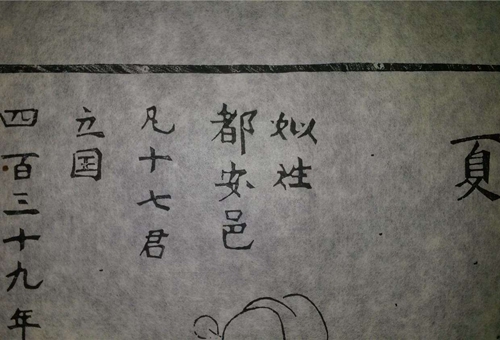 夏
姒姓
都安邑
凡十七君
立国
四百三十九年